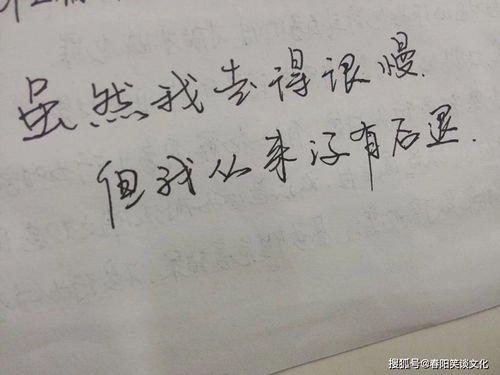 虽然我走得很慢.
但我从来没有后退.
搜狐号@春阳笑谈文化